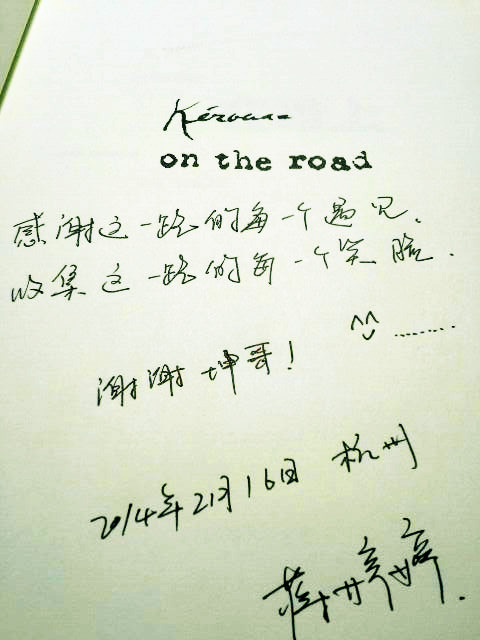 Kerouac
on the road
感谢这一路的每一个遇见.
收集这一路的每一个笑脸.
^^ ........
谢谢坤哥!
2014年2月16日 杭州